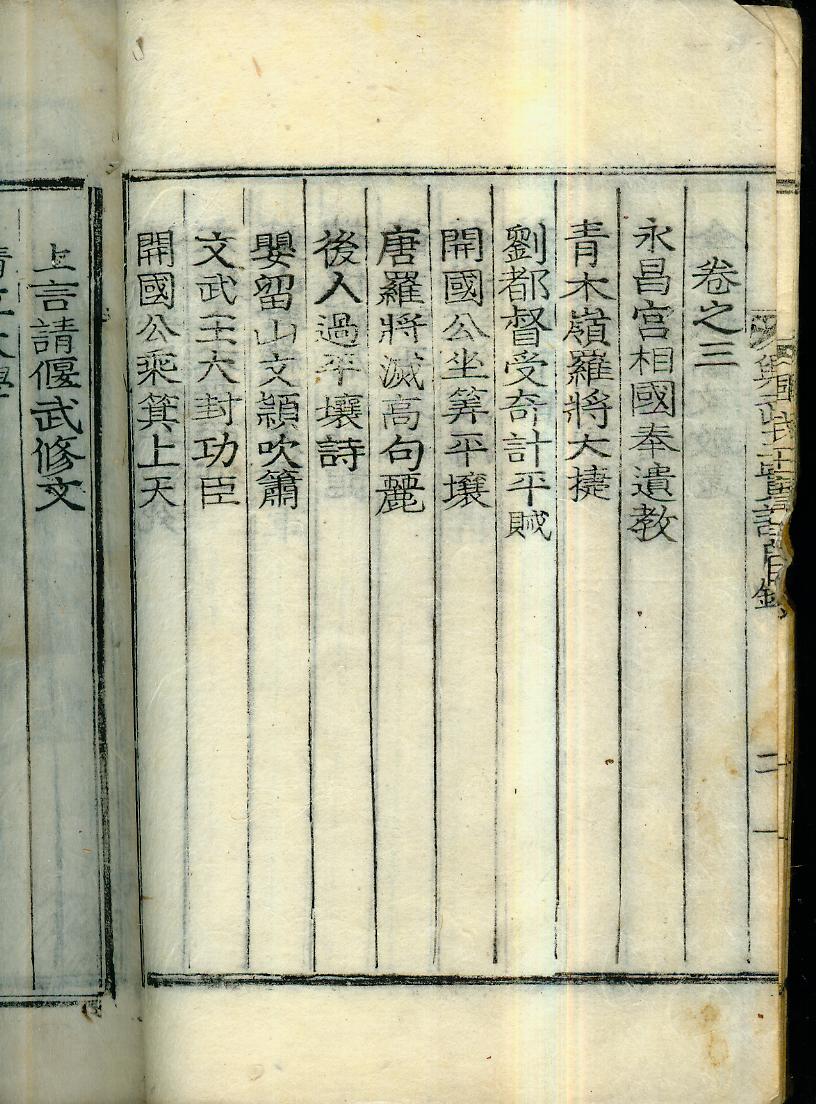 興武王實記目錄
二
一
卷之三
永昌宮相國奉遺教
青木嶺羅將大捷
劉都督受奇計平賊
開國公坐筭平壤
唐羅將滅高句麗
後人過平壤詩
嬰留山文頴吹簫
文武王大封功臣
開國公乘箕上天
上言請偃武修文